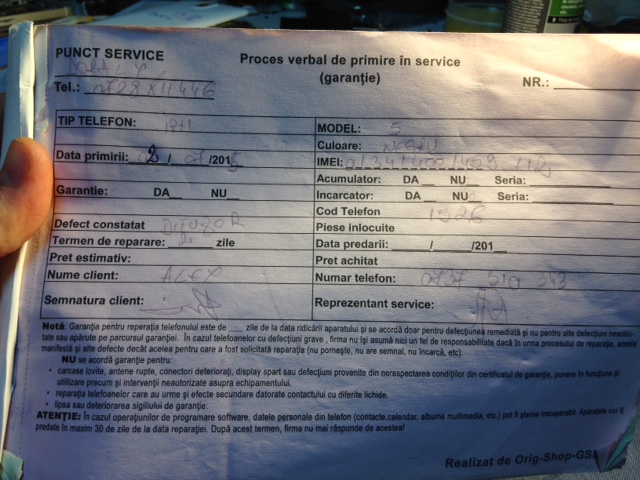 PUNCT SERVICE
Proces verbal de primire în service
(garanție)
Tel.:
NR.:
TIP TELEFON:
MODEL: 5
Culoare: NEGRU
Data primirii: /201
IMEI:
Acumulator: DA NU Seria:
Garantie: DA NU
Incarcator: DA NU Seria:
Cod Telefon 1526
Defect constatat DIFUZOR
Piese inlocuite
Termen de reparare: 2 zile
Data predarii: / /201
Pret estimativ:
Pret achitat
Nume client: ALEX
Numar telefon:
Semnatura client:
Reprezentant service:
Notă: Garanția pentru reparația telefonului este de ___ zile de la data ridicării aparatului și se acordă doar pentru defecțiunea remediată și nu pentru alte defecțiuni
tate sau apărute pe parcursul garanției. În cazul telefoanelor cu defecțiuni grave , firma nu își asumă nici un fel de responsabilitate dacă în urma procesului de reparație,
manifestă și alte defecte decât acelea pentru care a fost solicitată reparația (nu pornește, nu are semnal, nu încarcă, etc).
NU se acordă garanție pentru:
• carcase lovite, antene rupte, conectori deteriorați, display spart sau defecțiuni provenite din nerespectarea condițiilor din certificatul de garanție, punere în funcțiune și
utilizare precum și intervenții neautorizate asupra echipamentului.
• reparația telefoanelor care au urme și efecte secundare datorate contactului cu diferite lichide.
• lipsa sau deteriorarea sigiliului de garanție.
ATENȚIE: În cazul operațiunilor de programare software, datele personale din telefon (contacte,calendar, albume multimedia, etc.) pot fi șterse irecuperabil. Aparatele vor fi
predate în maxim 30 de zile de la data reparației. După acest termen, firma nu mai răspunde de acestea!
Realizat de Orig-Shop-GSM